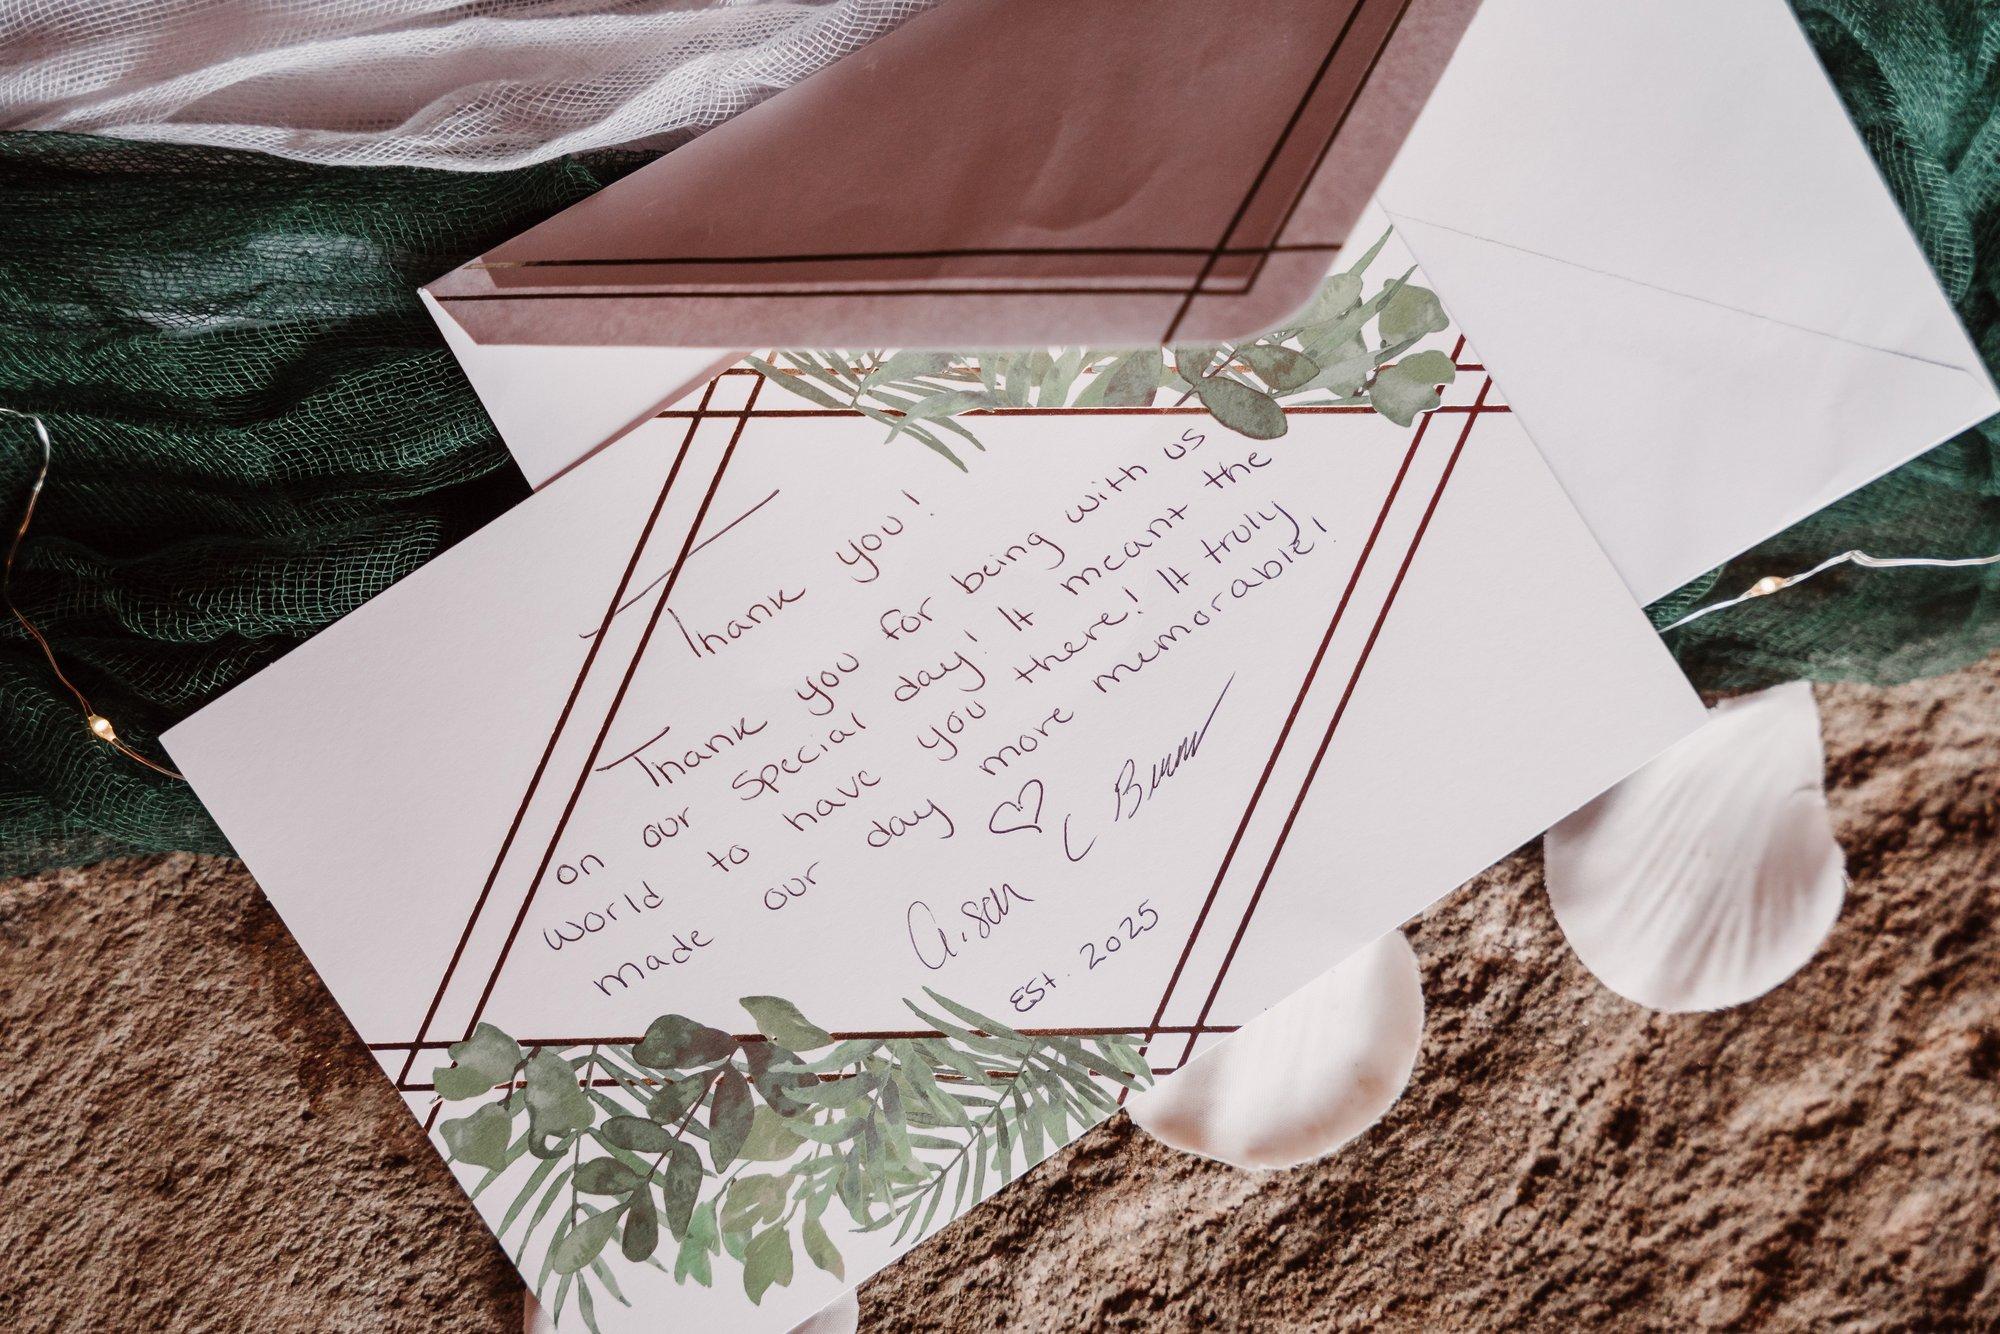 Thank you!
Thank you for being with us
on our special day! It meant the
world to have you there! It truly
made our day more memorable!
Est. 2025